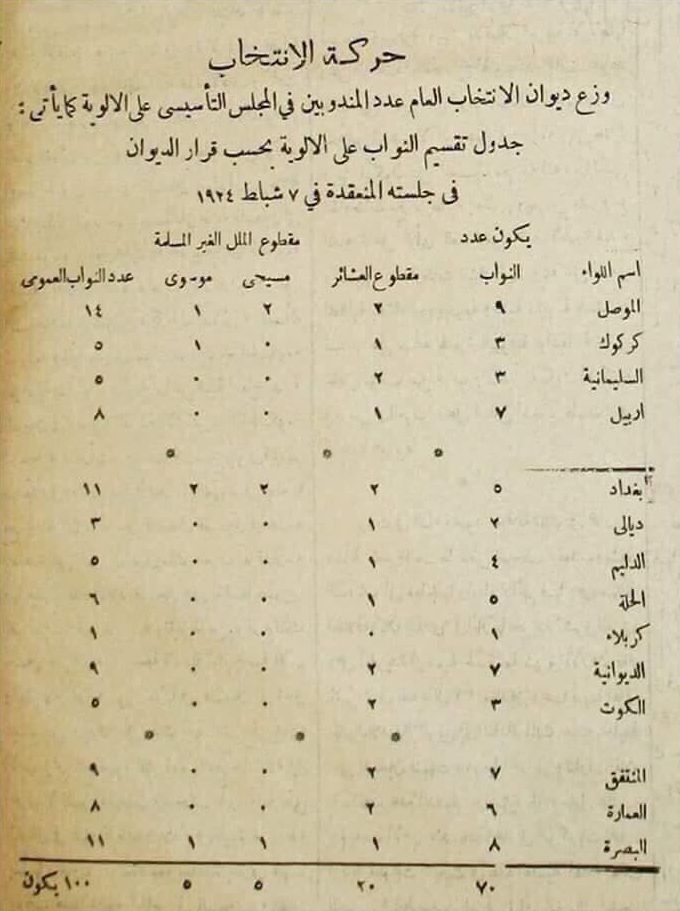 حركة الانتخاب
وزع ديوان الانتخاب العام عدد المندوبين في المجلس التأسيسي على الالوية كما يأتي :
جدول تقسيم النواب على الالوية بحسب قرار الديوان
في جلسته المنعقدة في ٧ شباط ١٩٢٤
يكون عدد مقطوع الملل الغير المسلمة
اسم اللواء النواب مقطوع العشائر مسيحي موسوي عدد النواب العمومي
الموصل ٩ ٢ ٢ ١ ١٤
كركوك ٣ ١ ٠ ١ ٥
السليمانية ٣ ٢ ٠ ٠ ٥
اربيل ٧ ١ ٠ ٠ ٨
* * *
بغداد ٥ ٢ ٢ ٢ ١١
ديالى ٢ ١ ٠ ٠ ٣
الدليم ٤ ١ ٠ ٠ ٥
الحلة ٥ ١ ٠ ٠ ٦
كربلاء ١ ٠ ٠ ٠ ١
الديوانية ٧ ٢ ٠ ٠ ٩
الكوت ٣ ٢ ٠ ٠ ٥
* * *
المنتفق ٧ ٢ ٠ ٠ ٩
العمارة ٦ ٢ ٠ ٠ ٨
البصرة ٨ ١ ١ ١ ١١
٧٠ ٢٠ ٥ ٥ ١٠٠ يكون